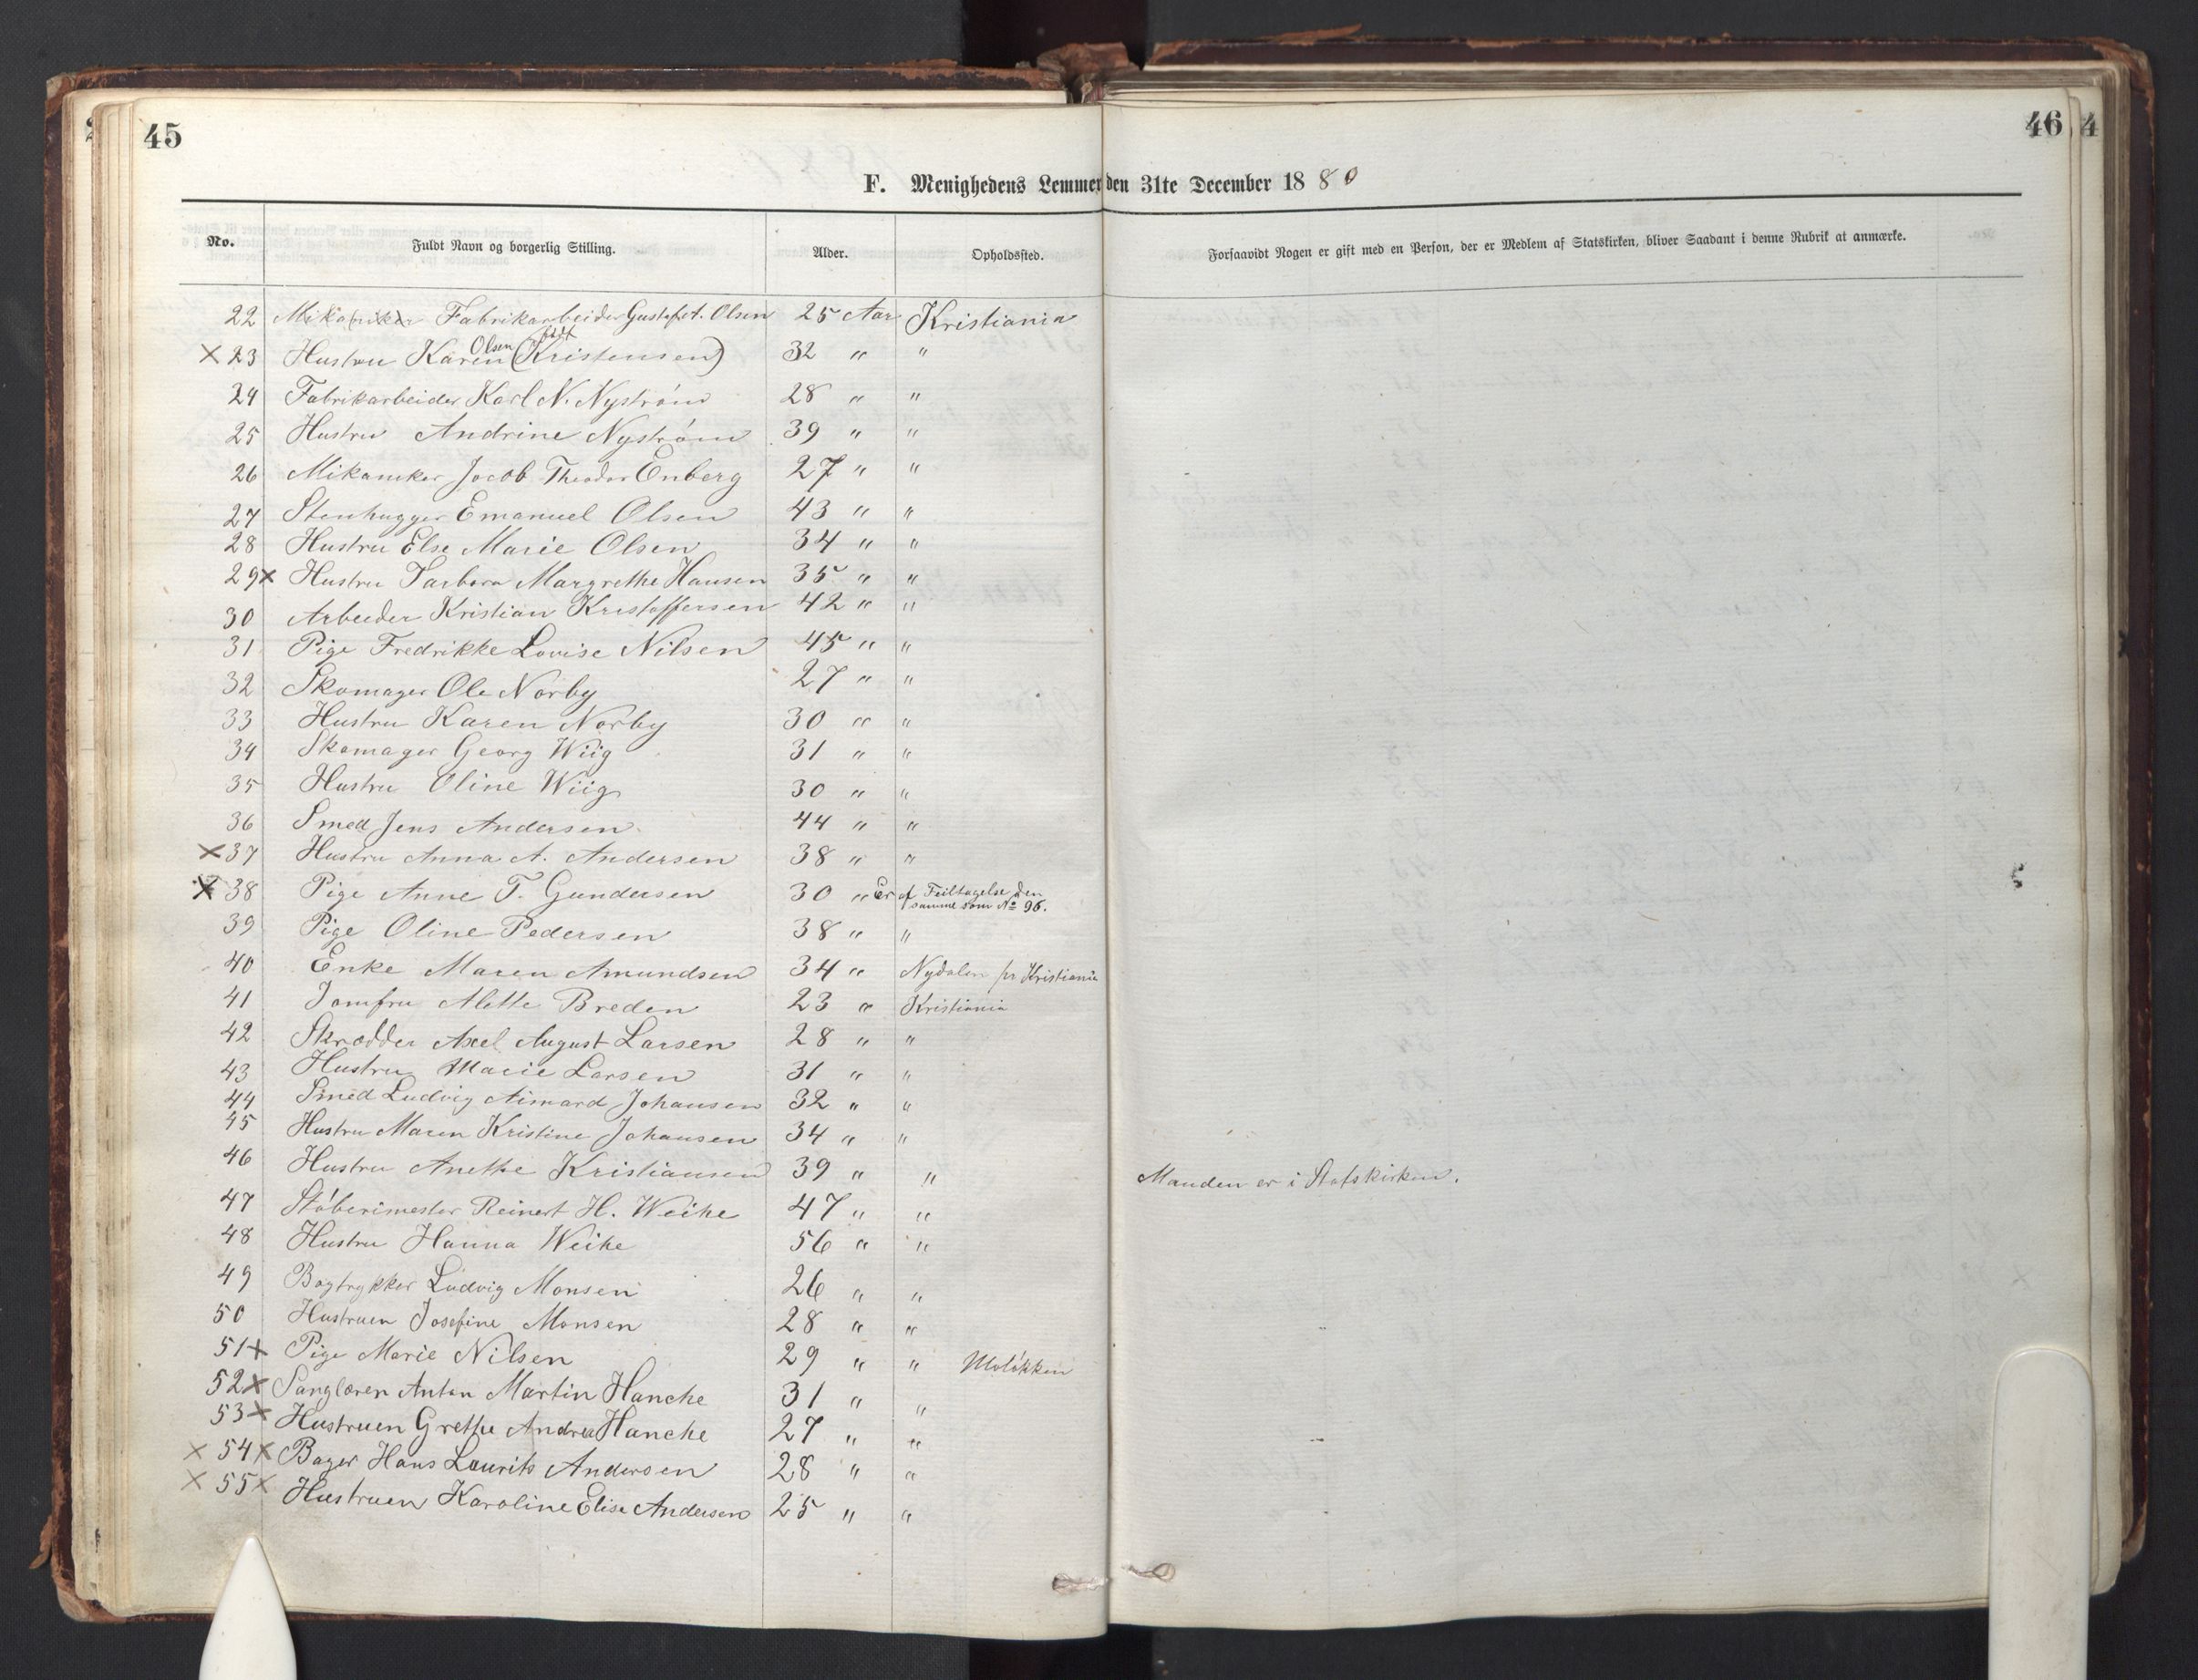 45
46
4
F. Menighedens Lemmer den 31te December 1880
No. Fuldt Navn og borgerlig Stilling. Alder. Opholdssted. Forsaavidt Nogen er gift med en Person, der er Medlem af Statskirken, bliver Saadant i denne Rubrik at anmærke.
22 Mikaniker Fabrikarbeider Gustaf A. Olsen 25 Aar Kristiania
× 23 Hustru Karen Olsen (født Kristensen) 32 " "
24 Fabrikarbeider Karl N. Nystrøm 28 " "
25 Hustru Andrine Nystrøm 39 " "
26 Mikaniker Jacob Theodor Enberg 27 " "
27 Stenhugger Emanuel Olsen 43 " "
28 Hustru Else Marie Olsen 34 " "
29 × Hustru Barbara Margrethe Hansen 35 " "
30 Arbeider Kristian Kristoffersen 42 " "
31 Pige Fredrikke Lovise Nilsen 45 " "
32 Skomager Ole Norby 27 " "
33 Hustru Karen Norby 30 " "
34 Skomager Georg Wiig 31 " "
35 Hustru Oline Wiig 30 " "
36 Smed Jens Andersen 44 " "
× 37 Hustru Anna A. Andersen 38 " "
× 38 Pige Anne T. Gundersen 30 " Er af Feiltagelse den
samme som No 96.
39 Pige Oline Pedersen 38 " "
40 Enke Maren Amundsen 34 " Nydalen pr Kristiania
41 Jomfru Mette Breden 23 " Kristiania
42 Skrædder Axel August Larsen 28 " "
43 Hustru Marie Larsen 31 " "
44 Smed Ludvig Aimard Johansen 32 " "
45 Hustru Maren Kristine Johansen 34 " "
46 Hustru Anethe Kristiansen 39 " " Manden er i Statskirken.
47 Støberimester Reinert H. Weihe 47 " "
48 Hustru Hanna Weihe 56 " "
49 Bogtrykker Ludvig Monsen 26 " "
50 Hustruen Josefine Monsen 28 " "
51 × Pige Marie Nilsen 29 " " Moløkken
52 × Sanglæren Anton Martin Hanche 31 " "
53 × Hustruen Grethe Andrea Hanche 27 " "
× 54 × Bager Hans Laurits Andersen 28 " "
× 55 × Hustruen Karoline Elise Andersen 25 " "